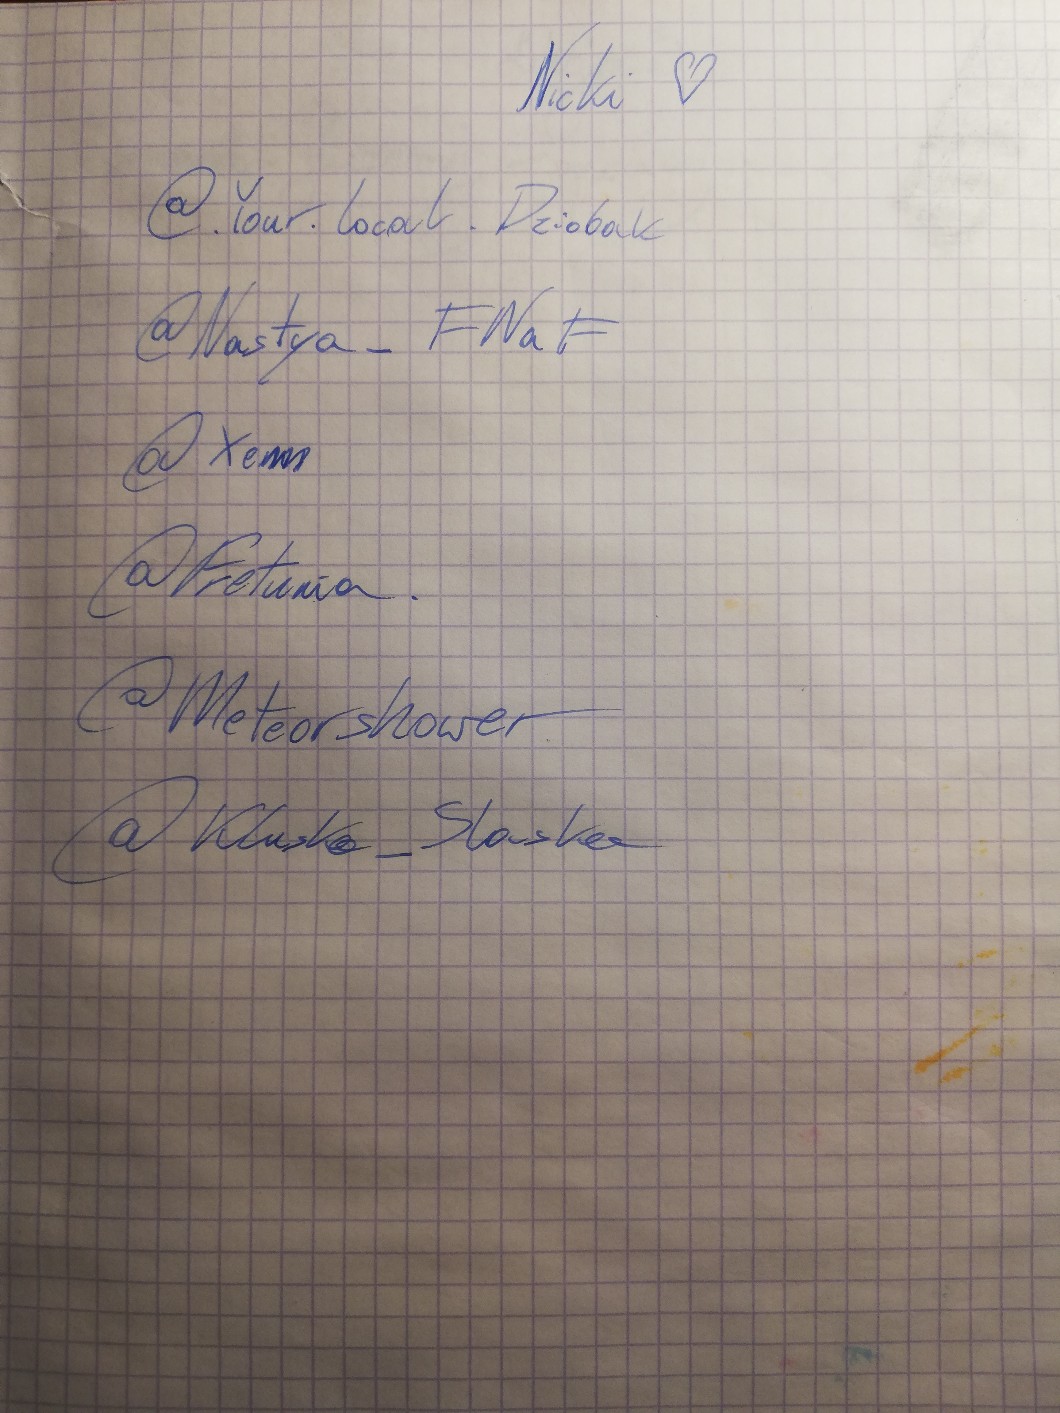 Nicki ♡
@.Your.local.Dziobak
@Nastya_FNaF
@Xemm
@Fretunia.
@Meteorshower
@Kluska_Slaska